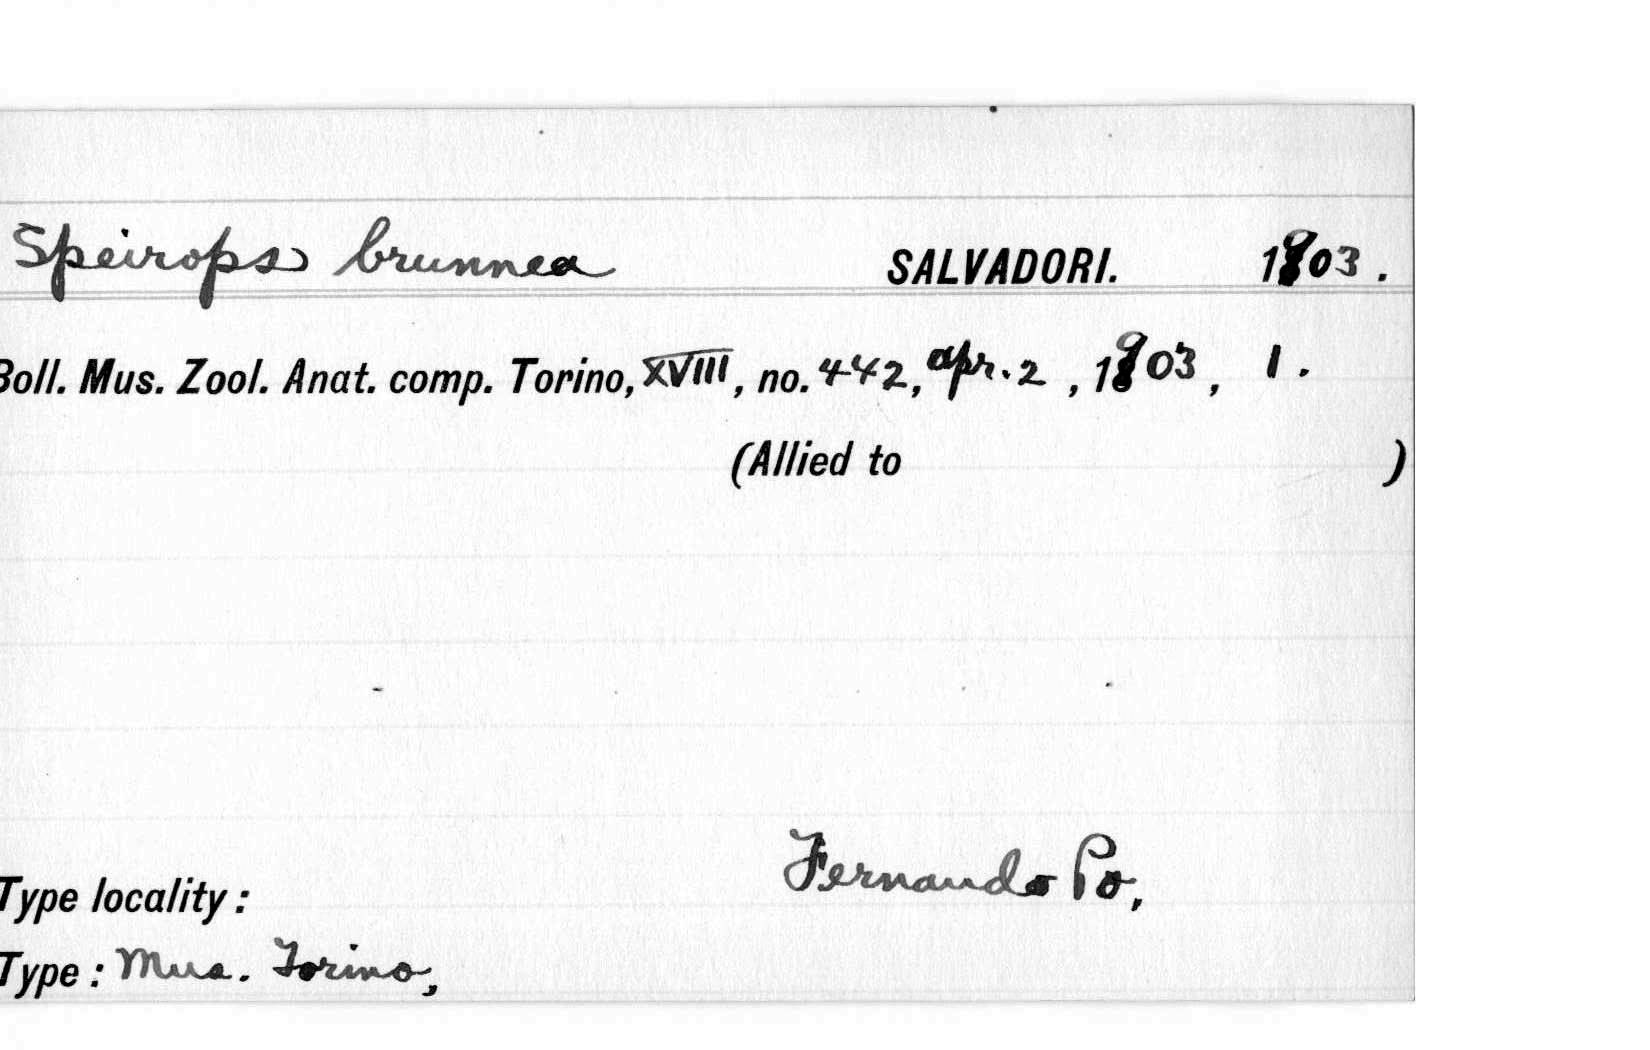 Speirops brunnea SALVADORI. 1903.
Boll. Mus. Zool. Anat. comp. Torino, XVIII, no. 442, apr. 2, 1903, 1.
(Allied to )
Type locality: Fernando Po,
Type: Mus. Torino,